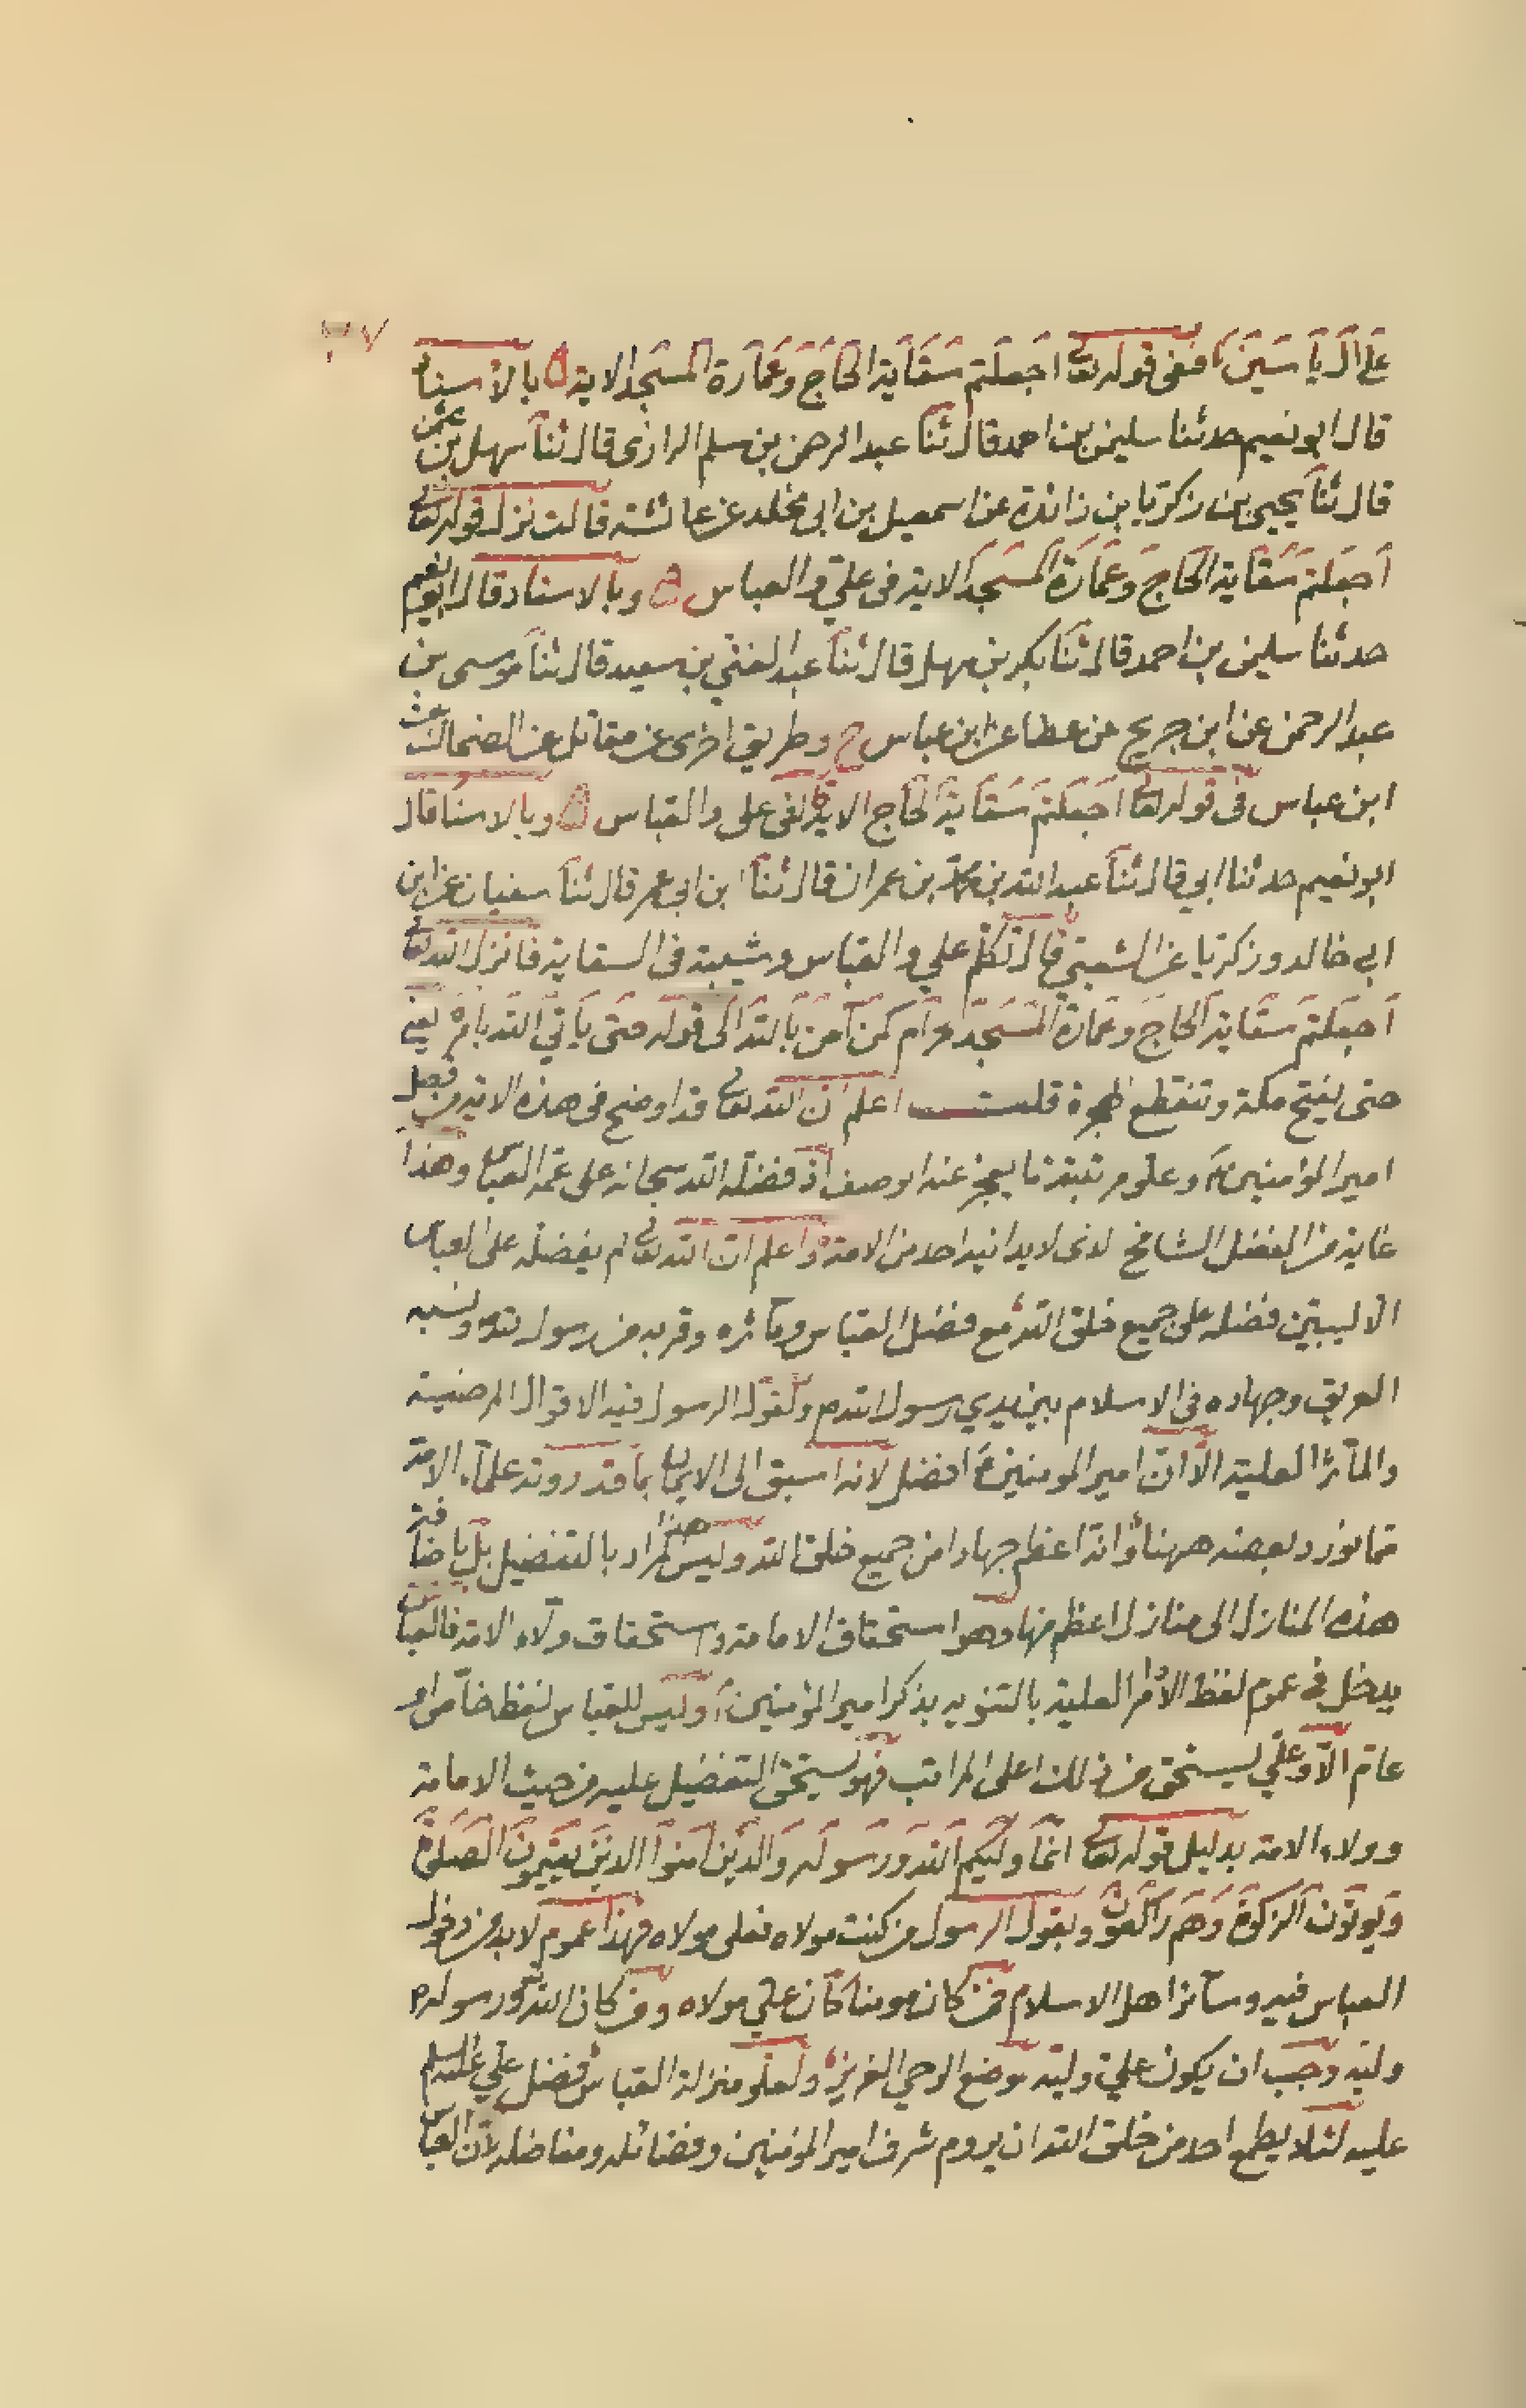 ٣٧
على آل ياسين ففى قوله تعا اجعلتم سقاية الحاج وعمارة المسجد الاية ه بالاسناد
قال ابو نعيم حدثنا سليمن بن احمد قال ثنا عبد الرحمن بن سلم الرازى قال ثنا سهل بن عثمن
قال ثنا يحيى بن زكريا بن زائدة عن اسمعيل بن ابى مخلد عن عائشة قالت نزل قوله تعالى
اجعلتم سقاية الحاج وعمارة المسجد الاية فى علي والعباس ه وبالاسناد قال ابو نعيم
حدثنا سليمن بن احمد قال ثنا بكر بن سهل قال ثنا عبد الغني بن سعيد قال ثنا موسى بن
عبد الرحمن عن ابن جريح عن عطا عن ابن عباس ح وطريق اخرى عن مقاتل عن الضحاك عن
ابن عباس فى قوله تعا اجعلتم سقاية الحاج الاية قال فى على والعباس ه وبالاسنا قال
ابو نعيم حدثنا ابي قال ثنا عبد الله بن محمد بن عمران قال ثنا ابن ابى عمر قال ثنا سفيان عن ابن
ابى خالد وزكريا عن الشعبي قال تكلم علي والعباس وشيبة فى السقاية فانزل الله تعا
اجعلتم سقاية الحاج وعمارة المسجد الحرام كمن آمن بالله الى قوله حتى يأتي الله بامره يعنى
حتى يفتح مكة وتنقطع الهجرة قلت اعلم ان الله تعا قد اوضح فى هذه الاية من فضل
امير المؤمنين وعلو مرتبته ما يعجز عنه الوصف اذ فضله الله سبحانه على عمه العباس وهذا
غاية من الفضل الشامخ لذى لا يدانيه احد من الامة واعلم ان الله تعا لم يفضله على العباس
الا ليبين فضله على جميع خلق الله مع فضل العباس ومآثره وقربه من رسول الله ونسبه
العريق وجهاده فى الاسلام بين يدي رسول الله ولقول الرسول فيه الاقوال المرضية
والمآثر العلية الا ان امير المومنين افضل لانه اسبق الى الايمان بما قد روته علماء الامة
مما نورد بعضه ههنا وانه اعظم جهادا من جميع خلق الله وليس هذا المراد بالتفضيل بل باضافة
هذه المنازل الى منازل اعظم منها وهو استحقاق الامامة واستحقاق ولاء الامة فالعباس
يدخل فى عموم لفظ الاوامر العلية بالتنويه بذكر امير المؤمنين وليس للعباس لفظ خاص او
عام الا وعلي يستحق من ذلك اعلى المراتب فهو يستحق التفضيل عليه من حيث الامامة
وولاء الامة بدليل قوله تعا انما وليكم الله ورسوله والذين آمنوا الذين يقيمون الصلوة
ويوتون الزكوة وهم راكعون وبقول الرسول من كنت مولاه فعلى مولاه فهذا عموم لا بد من دخول
العباس فيه وسائر اهل الاسلام فمن كان مومنا كان علي مولاه ومن كان الله ورسوله
وليه وجب ان يكون علي وليه بوضع الوحي العزيز ولعلو منزلة العباس فضل علي عليه السلم
عليه لئلا يطمع احد من خلق الله ان يروم شرف امير المؤمنين وفضائله ومفاضله لان العباس